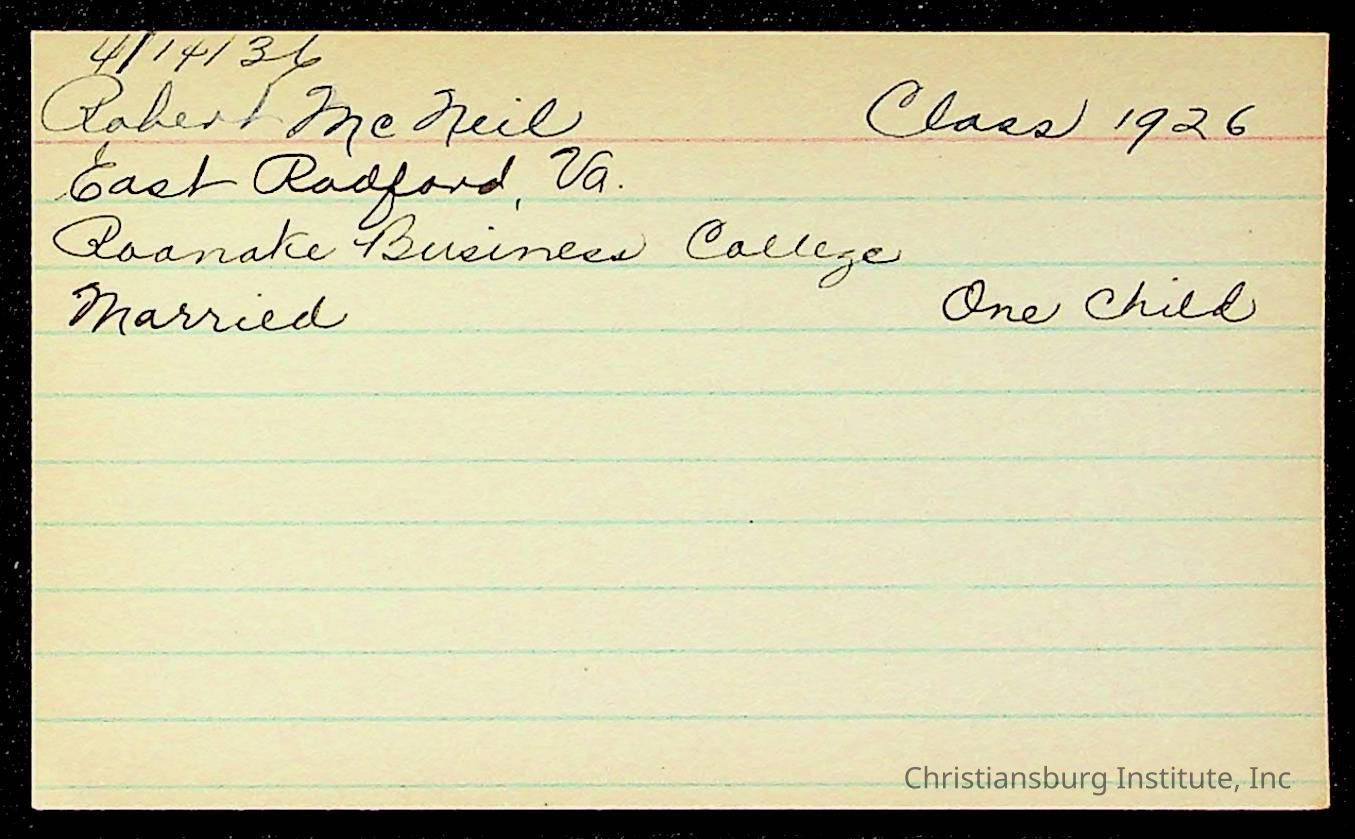 4/14/36
Robert McNeil Class 1926
East Radford, Va.
Roanoke Business College
Married One Child
Christiansburg Institute, Inc